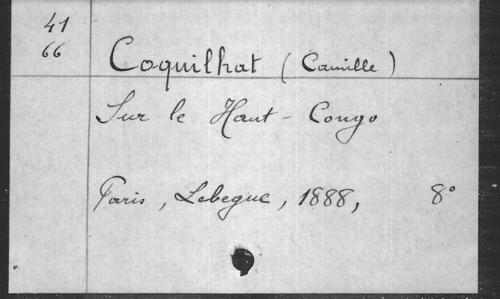 41
66
Coquilhat (Camille)
Sur le Haut-Congo
Paris, Lebegue, 1888, 8°